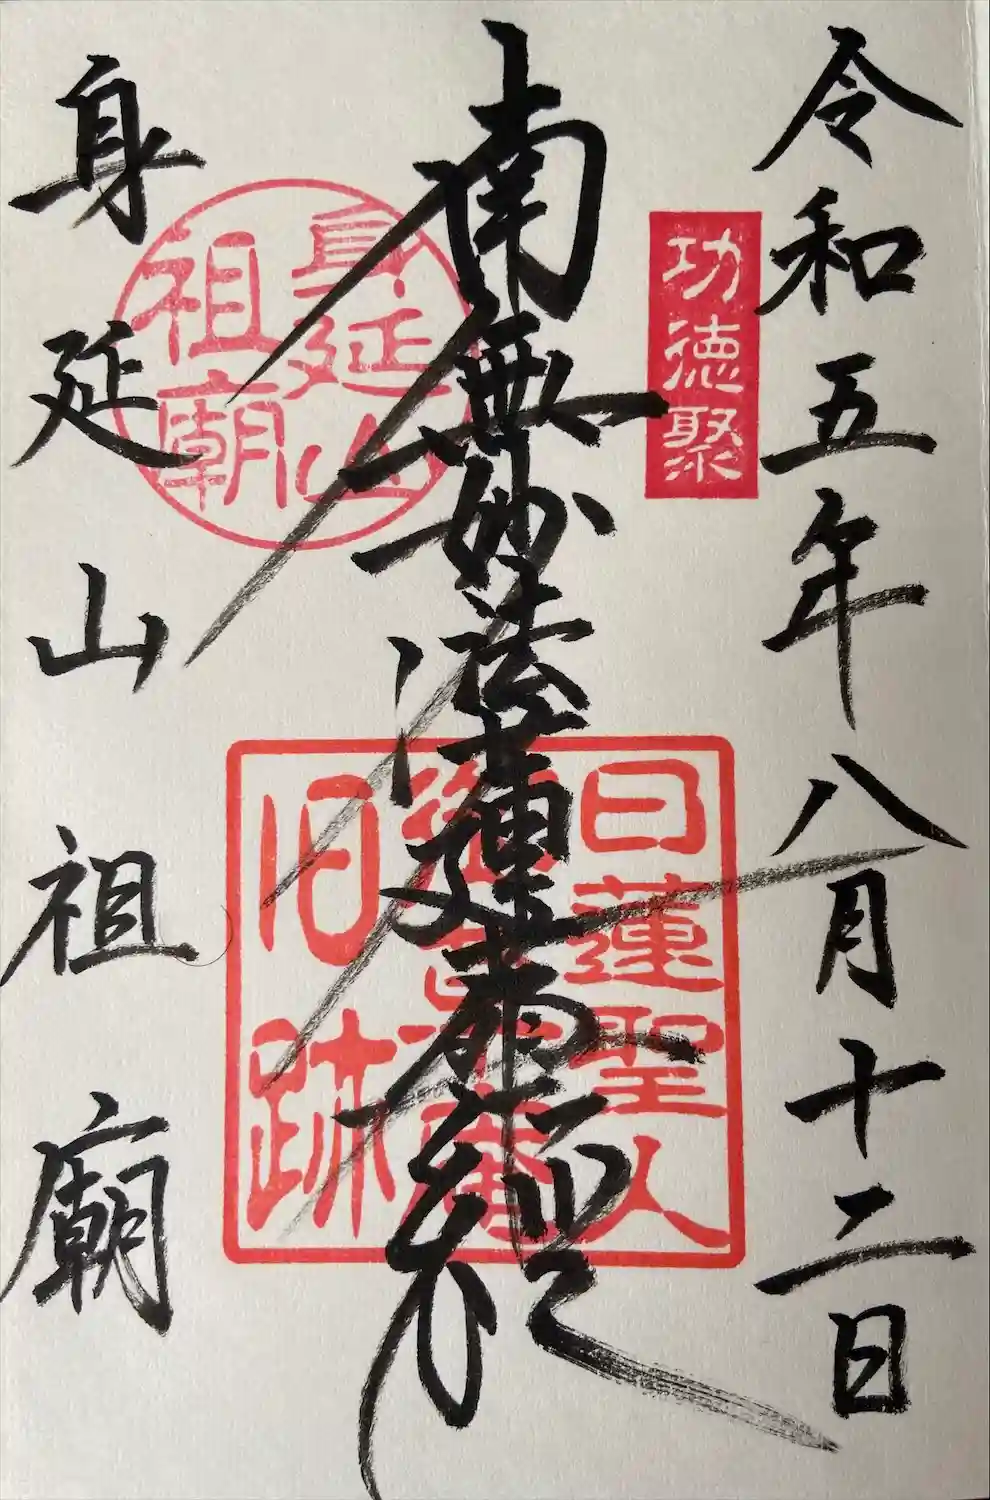 令和五年八月十二日
功徳聚
南無妙法蓮華経
身延山
祖廟
日蓮聖人
御草庵
旧跡
身延山祖廟